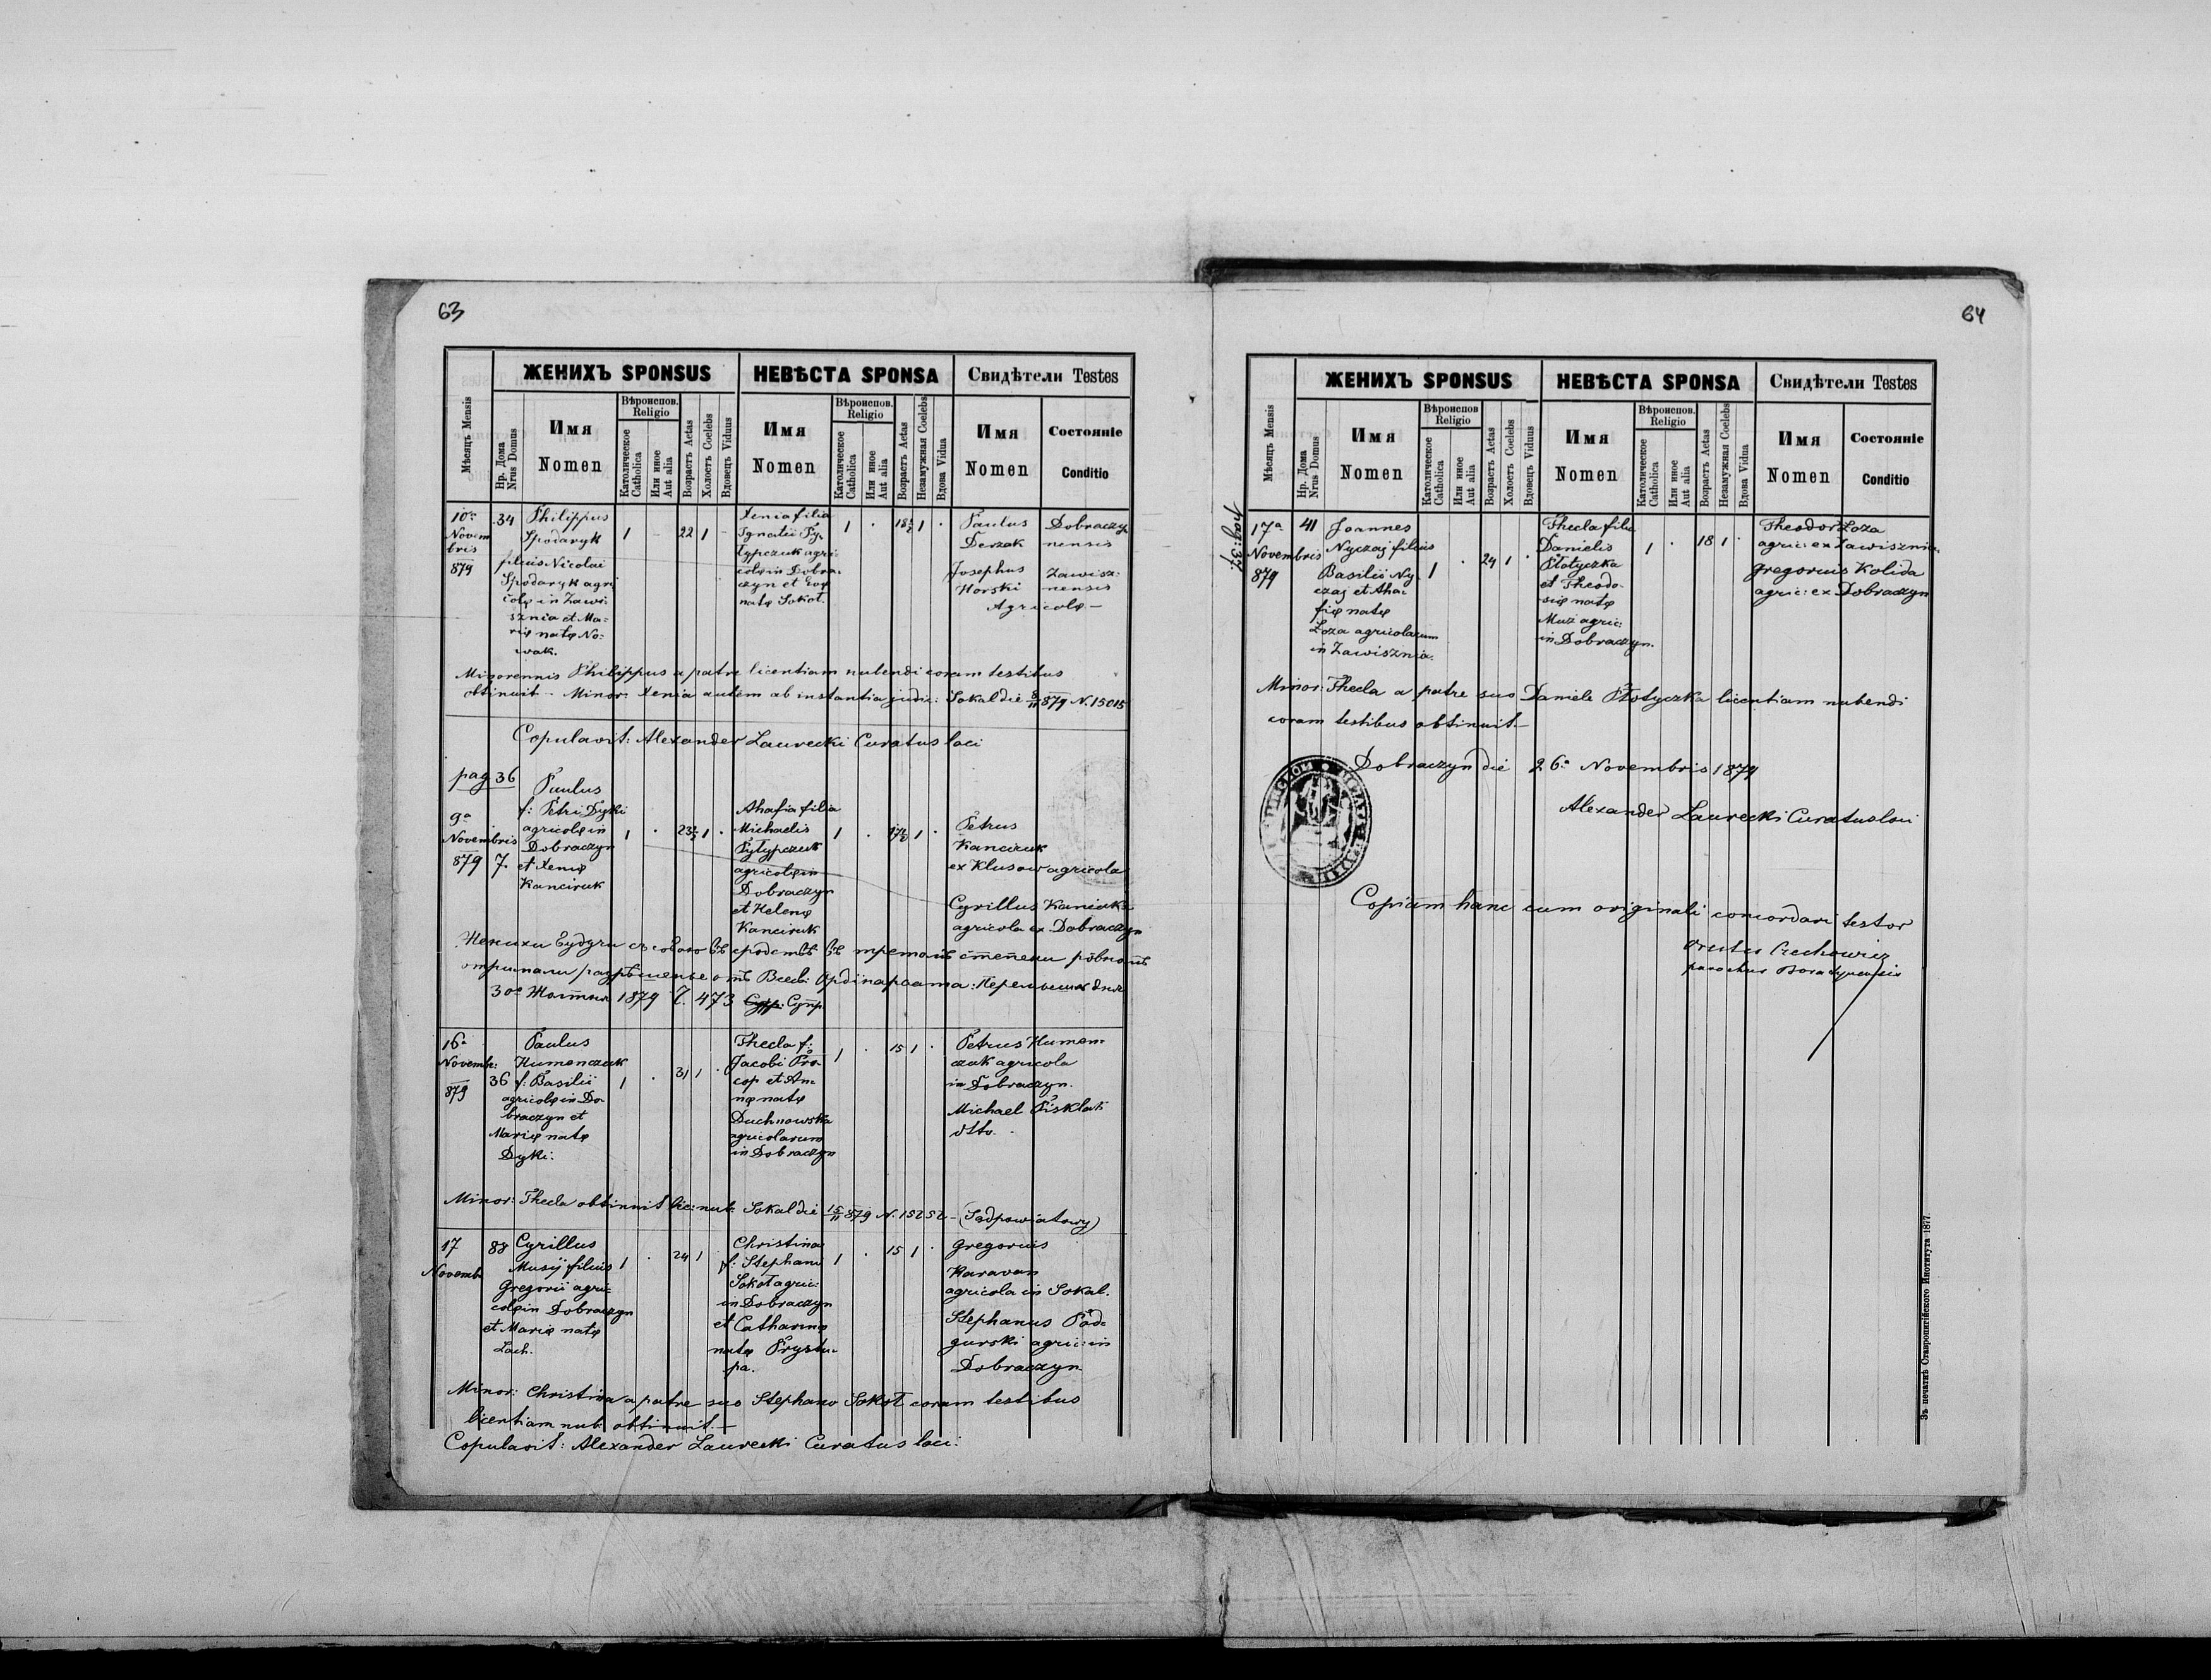 63
ЖЕНИХЪ SPONSUS
НЕВѢСТА SPONSA
Свидѣтели Testes
Мѣсяцъ Mensis
Нр. Дома
Nrus Domus
Имя
Nomen
Вѣроиспов.
Religio
Католическое
Catholica
Или иное
Aut alia
Возрастъ Aetas
Холостъ Coelebs
Вдовецъ Viduus
Имя
Nomen
Вѣроиспов.
Religio
Католическое
Catholica
Или иное
Aut alia
Возрастъ Aetas
Незамужная Coelebs
Вдова Vidua
Имя
Nomen
Состояніе
Conditio
10a
Novem
bris
879
34
Philippus
Spodaryk
filius Nicolai
Spodaryk agri
colę in Zawi
sznia et Ma=
rię natę No=
wak.
1 - 22 1 -
Xenia filia
Ignatii Py
typczuk agri
colę in Dobra
czyn et Evę
natę Sokoł.
1 . 18½ 1 .
Paulus
Derzak
Dobraczy
nensis
Josephus
Horski
Zawisz
nensis
Agricolę -
Minorennis Philippus a patre licentiam nubendi coram testibus
obtinuit - Minor: Xenia autem ab instantia judic: Sokal die 8/11 879 N. 15015
Copulavit: Alexander Laurecki Curatus loci
pag 36
9a
Novembris
879
7.
Paulus
f: Petri Dyki
agricolę in
Dobraczyn
et Xenię
Kanciruk
1 . 23½ 1 .
Ahafia filia
Michaelis
Pytypczuk
agricolę in
Dobraczyn
et Helenę
Kanciruk
1 . 1 .
Petrus
Kanciruk
ex Klusow agricola
Cyrillus
agricola ex Dobraczyn
Женихи будучи съ собою въ сродствѣ въ третомъ степени
отримали разрѣшенье отъ Всесв: Ордінаріата: Перемышль дня
30ого 1879 Ч. 473
16a
Novemb:
879
36
Paulus
Humenczuk
f: Basilii
agricolę in Do
braczyn et
Marię natę
Dyki.
1 . 31 1 .
Thecla f:
Jacobi Pro
cop et An
nę natę
Duchnowska
agricolarum
in Dobraczyn
1 . 15 1 .
Petrus Humen
czuk agricola
in Dobraczyn.
Michael Pisklak
dtto.
Minor: Thecla obtinuit lic: nub: Sokal die 15/11 879 N. 15252 - (Sąd powiatowy)
17
Novemb
88
Cyrillus
Musij filius
Gregorii agri
colę in Dobraczyn
et Marię natę
Lach.
1 . 24 1
Christina
f: Stephani
Sokoł agric:
in Dobraczyn
et Catharinę
natę Prystu
pa.
1 . 15 1 .
Gregorius
Karavan
agricola in Sokal.
Stephanus Pod
gurski agric: in
Dobraczyn
Minor: Christina a patre suo Stephano Sokoł coram testibus
licentiam nub: obtinuit. -
Copulavit: Alexander Laurecki Curatus loci.
64
ЖЕНИХЪ SPONSUS
НЕВѢСТА SPONSA
Свидѣтели Testes
Мѣсяцъ Mensis
Нр. Дома
Nrus Domus
Имя
Nomen
Вѣроиспов
Religio
Католическое
Catholica
Или иное
Aut alia
Возрастъ Aetas
Холостъ Coelebs
Вдовецъ Viduus
Имя
Nomen
Вѣроиспов.
Religio
Католическое
Catholica
Или иное
Aut alia
Возрастъ Aetas
Незамужная Coelebs
Вдова Vidua
Имя
Nomen
Состояніе
Conditio
pag: 37.
17a
Novembris
879
41
Joannes
Nyczaj filius
Basilii Ny
czaj et Aha
fię natę
Łoza agricolarum
in Zawisznia.
1 . 24 1 .
Thecla filia
Danielis
Płotyczka
et Theodo
się natę
Muz agric:
in Dobraczyn.
1 . 18 1 .
Theodor Łoza
agric: ex Zawisznia
Gregorius Kolida
agric: ex Dobraczyn
Minor: Thecla a patre suo Daniele Płotyczka licentiam nubendi
coram testibus obtinuit. -
Dobraczyn die 26a Novembris 1879
Alexander Laurecki Curatus loci
Copiam hanc cum originali concordari testor
Czechowicz
parochus
Зъ печатнѣ Ставропигійского Института 1877.